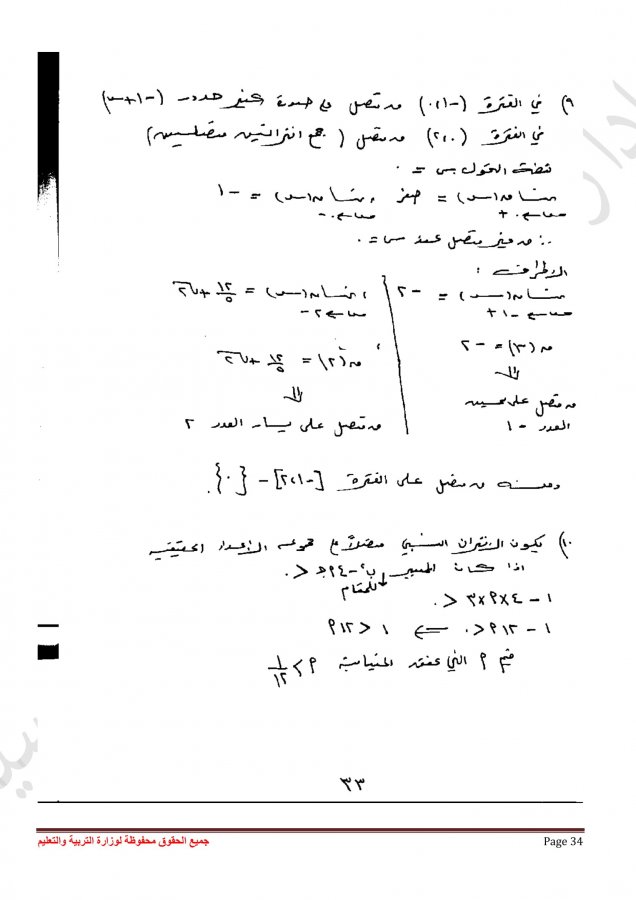 ٩) في الفترة (-١،٠) ق متصل على صورة كثير حدود (-١+س)
في الفترة (٢،٠) ق متصل ( جمع اقترانين متصلين)
نقطة التحول س = ٠
نهـــا ق(س) = صفر ، نهـــا ق(س) = -١
س←٠+ س←٠-
∴ ق غير متصل عند س = ٠
الأطراف :
نهـــا ق(س) = -٢
س←-١+
ق(-١) = -٢
⇓
ق متصل على يمين
العدد -١
، نهـــا ق(س) =
س←٢-
، ق(٢) =
⇓
ق متصل على يسار العدد ٢
ومنه ق متصل على الفترة [-٢،١] - {٠}.
١٠) يكون الاقتران النسبي متصلاً على مجموعة الأعداد الحقيقية
اذا كان المميز ب٢-٤أجـ < ٠
للمقام
١ - ٤×أ×٣ < ٠
١ - ١٢أ < ٠ ⇐ ١ < ١٢أ
قيم أ التي تحقق المتباينة أ > ١/١٢
٣٣
جميع الحقوق محفوظة لوزارة التربية والتعليم
Page 34